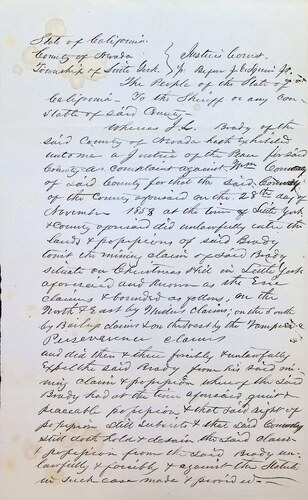 State of California
County of Nevada
Township of Little York
Justice's Court
The People of the State of
California To the Sheriff or any con
stable of said County
Whereas J. L. Brady of the
said County of Nevada hath exhibited
unto me a Justice of the Peace for said
County a Complaint against Wm
of said County for that the said
of the County aforesaid on the 28th day of
November 1853 at the town of Little York
& County aforesaid did unlawfully enter the
lands & possessions of said Brady
to wit the mining claim of said Brady
situate on Christmas Hill in Little York
aforesaid and known as the Erie
claims & bounded as follows, on the
North & East by claims; on the South
by claims & on the West by the
Perseverence claims
and did then & there forcibly & unlawfully
Expell the said Brady from his said mi
ning claim & possession whereof the said
Brady had at the time aforesaid quiet &
peaceable possession, & that said right of
possession still subsists & that said
still doth hold & detain the said claims
& possession from the said Brady un
lawfully & forcibly & against the Statute
in such case made & provided